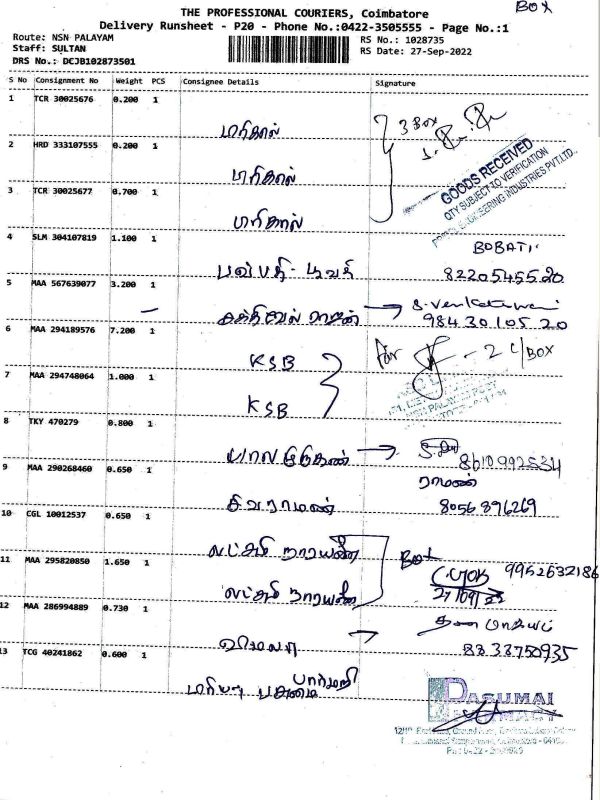 BOX
THE PROFESSIONAL COURIERS, Coimbatore
Delivery Runsheet - P20 - Phone No.:0422-3505555 - Page No.:1
Route: NSN PALAYAM
RS No.: 1028735
Staff: SULTAN
RS Date: 27-Sep-2022
DRS No.: DCJB102873501
S No Consignment No Weight PCS Consignee Details Signature
1 TCR 30025676 0.200 1
மரிகால்
3 Box
2 HRD 333107555 0.200 1
மரிகால்
GOODS RECEIVED
QTY SUBJECT TO VERIFICATION
ENGINEERING INDUSTRIES PVT.LTD.,
3 TCR 30025677 0.700 1
மரிகால்
4 SLM 304107819 1.100 1
8220545520
5 MAA 567639077 3.200 1
சக்திவேல் ராஜன்
98430105 20
6 MAA 294189576 7.200 1
KSB
for - 2 C/BOX
7 MAA 294748064 1.000 1
KSB
8 TKY 470279 0.800 1
பாலமுருகன்
8610992534
9 MAA 290268460 0.650 1
சிவராமன்
ராமன்
8056896269
10 CGL 10012537 0.650 1
லட்சுமி நாராயணீ
Box
11 MAA 295820850 1.650 1
லட்சுமி நாராயணீ
9952632186
27/09/22
12 MAA 286994889 0.730 1
விமலா
8333750935
13 TCG 40241862 0.600 1
பசுமை பார்மஸி
PASUMAI
PHARMACY